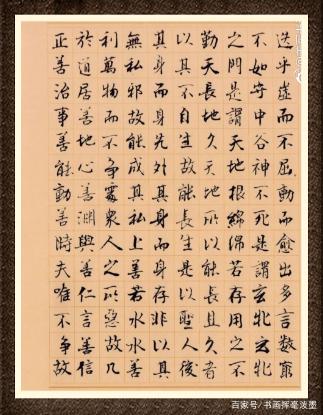 迭乎虚而不屈動而愈出多言數窮
不如守中谷神不死是謂玄牝玄牝
之門是謂天地根綿綿若存用之不
勤天長地久天地所以能長且久者
以其不自生故能長生是以聖人後
其身而身先外其身而身存非以其
無私邪故能成其私上善若水水善
利萬物而不爭處衆人之所惡故几
於道居善地心善淵與善仁言善信
正善治事善能動善時夫唯不爭故
百家号/书画挥毫泼墨